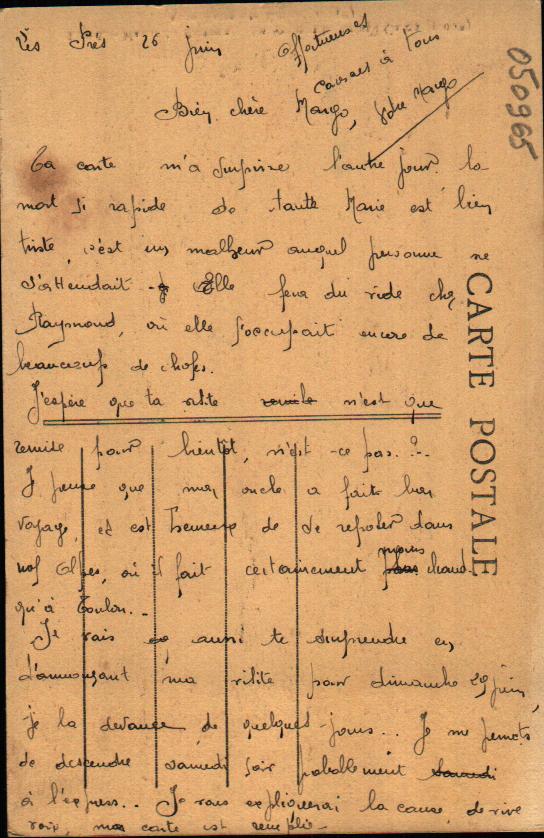 Les Prés 26 juin
Affectueuses
caresses à tous
Bien chère Margo, Votre Margo
050965
Ta carte m'a surprise l'autre jour. la
mort si rapide de tante Marie est bien
triste, c'est un malheur auquel personne ne
s'attendait. Elle fera du vide chez
Raymond, où elle s'occupait encore de
beaucoup de choses.
J'espère que ta visite remise n'est que
remise pour bientôt, n'est-ce pas..?..
Je pense que mon oncle a fait bon
voyage, et est heureux de se reposer dans
nos Alpes, où il fait certainement moins chaud
qu'à Toulon..
Je vais aussi te surprendre en
t'annonçant ma visite pour dimanche 29 juin,
je la devance de quelques jours... Je me permets
de descendre samedi soir probablement samedi
à l'express... Je vous expliquerai la cause de vive
voix, ma carte est remplie.
CARTE POSTALE